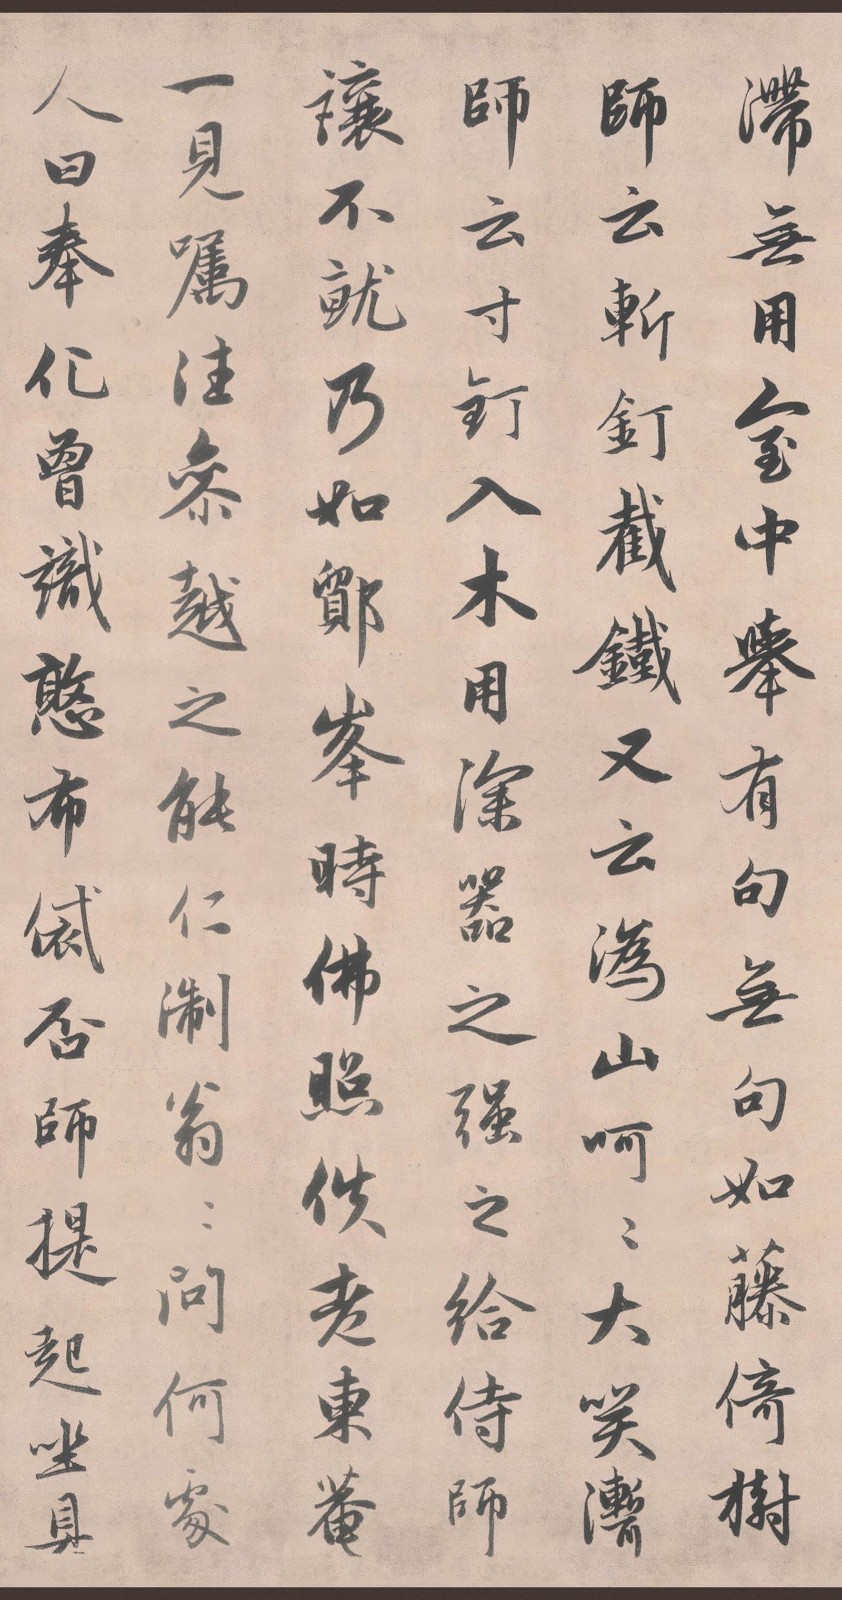 滯無用室中舉有句無句如藤倚樹
師云斬釘截鐵又云溈山呵〻大笑漸
師云寸釘入木用深器之强之給侍師
讓不就乃如鄮峯時佛照佚老東菴
一見囑注參越之能仁淛翁〻問何處
人曰奉化曾識憨布袋否師提起坐具